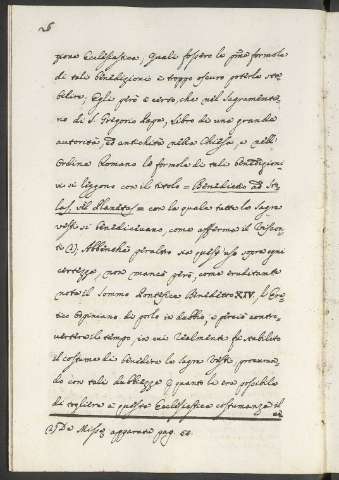 zione Ecclesiastica, Quali fossero le prime formole
di tali Benedizioni è troppo oscuro poterlo sta-
bilire, Egli però è certo, che nel Sagramenta-
rio di S. Gregorio Magno, Libro di una grande
autorità, ed antichità nella Chiesa, e nell'
Ordine Romano le formole di tali Benedizioni
si leggono con il titolo = Benedictio ad
= con la quale tutte le Sagre
vesti si benedicevano, come afferma il
(2), Abbenchè peraltro sia quest' uso sopra ogni
certezza, non mancò però, come eruditamente
nota il Sommo Pontefice Benedetto XIV, l' Ere-
tico Ospiniano di porlo in dubbio, e perciò contro-
vertere il tempo, in cui realmente fu stabilito
il costume di benedire le Sagre Vesti procuran-
do con tali dubbiezze quanto li era possibile
di togliere a questa Ecclesiastica costumanza il
(2) De Missæ apparatu pag.